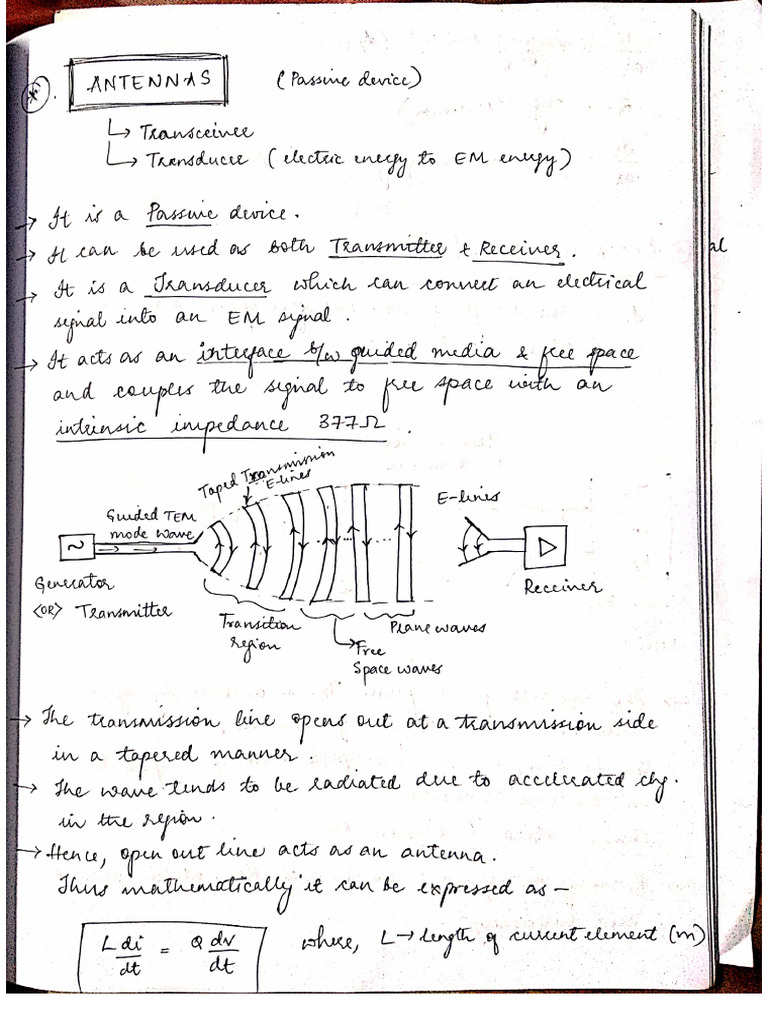 *. ANTENNAS (Passive device)
↳ Transceiver
↳ Transducer (electric energy to EM energy)
→ It is a Passive device.
→ It can be used as both Transmitter & Receiver.
al
→ It is a Transducer which can connect an electrical
signal into an EM signal.
→ It acts as an interface b/w guided media & free space
and couples the signal to free space with an
intrinsic impedance 377Ω.
Taped Transmission
E-lines
E-lines
Guided TEM
mode wave
~
Generator
<OR> Transmitter
Receiver
Transition
region
Free
Space waves
Plane waves
→ The transmission line opens out at a transmission side
in a tapered manner.
→ The wave tends to be radiated due to accelerated chg.
in the region.
→ Hence, open out line acts as an antenna.
Thus mathematically it can be expressed as –
L di/dt = Q dv/dt where, L → length of current element (m)